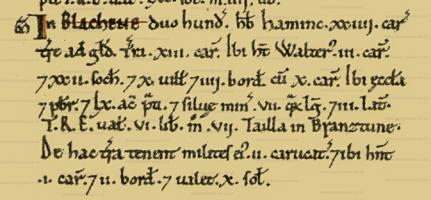 ɱ In Blacheue duo hund'. hb̄ hamine. xxiiii. car̄
t̄re ad gld̄. T̄ri. xiii. car̄. Ibi hт̄ Walteri'. iii. car̄.
⁊ xxii. soch. ⁊ x. vill' ⁊ iiii. bord' cū x. car̄. Ibi eccl̄a
⁊ pbr̄. ⁊ lx. ac̄ p̄ti. ⁊ silue min̄. vii. q̄ꝝ lḡ. ⁊ iii. lat̄.
T.R.E. ual̄. vi. lib̄. m̄ .vii. Tailla in Branztune.
De hac t̄ra tenent milites ei'. ii. carucat̄. ⁊ ibi hn̄t
.i. car̄. ⁊ ii. bord'. ⁊ ualet. x. sol̄.